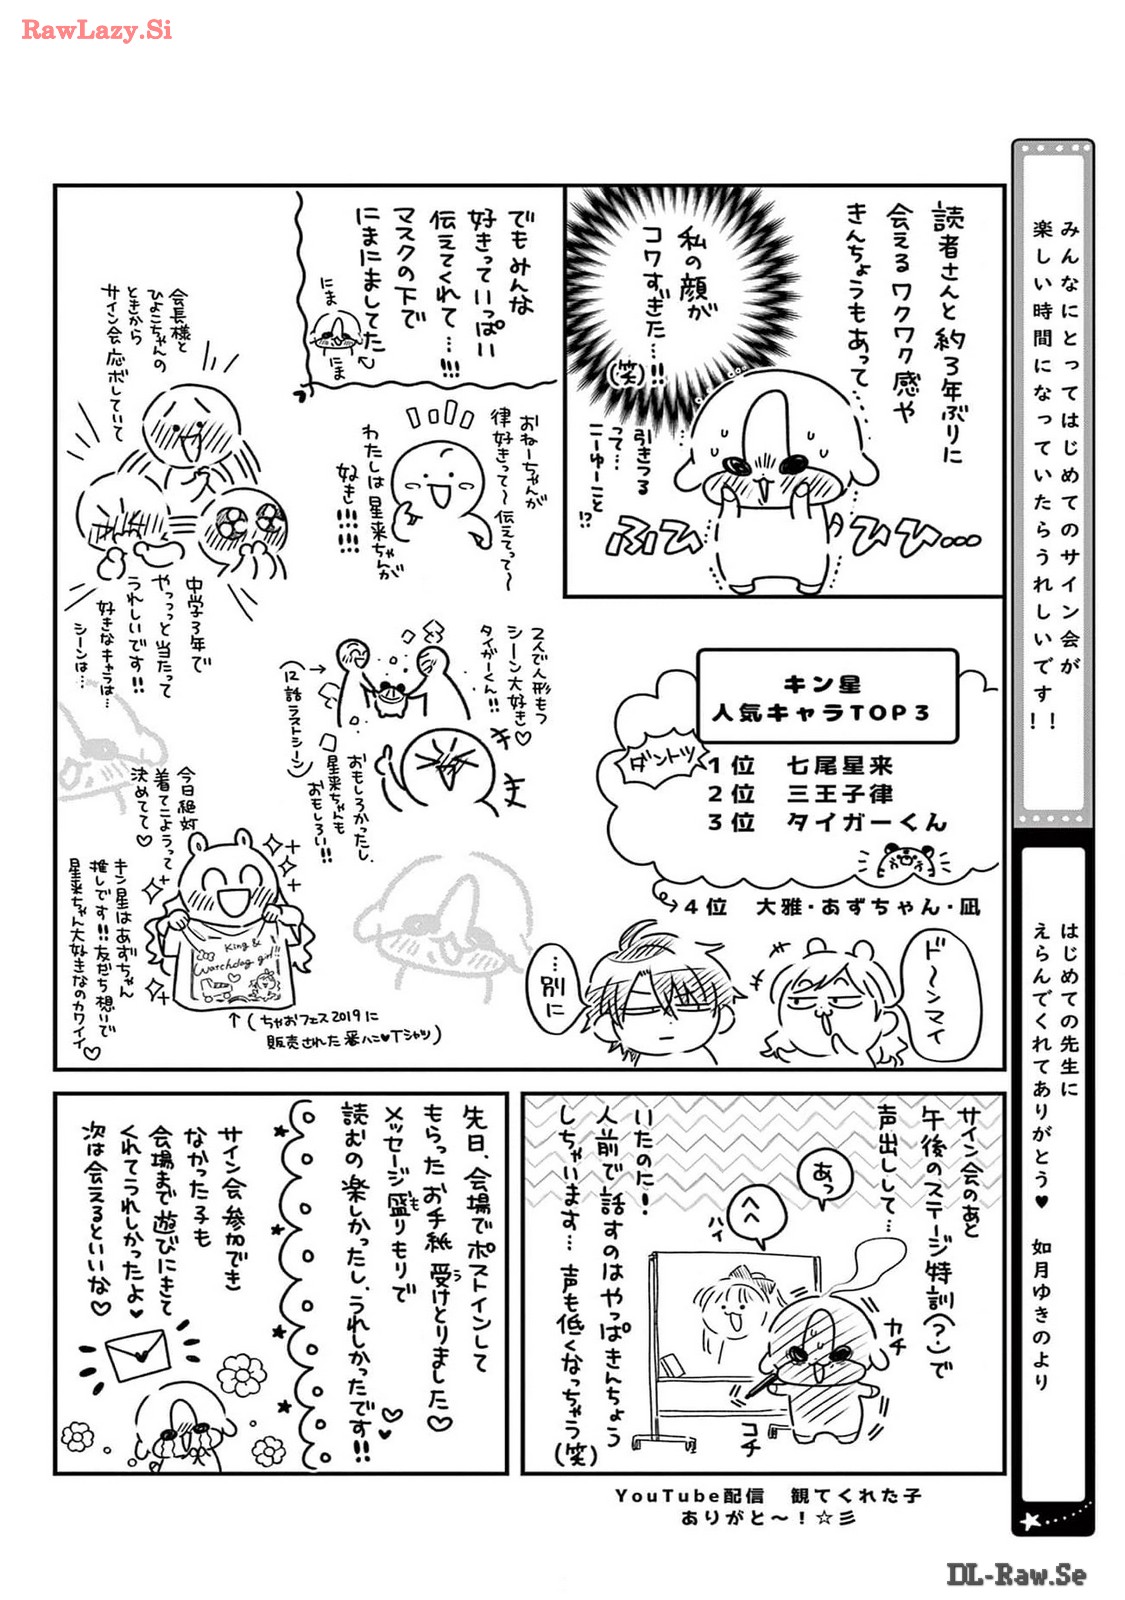 RawLazy.Si
みんなにとってはじめてのサイン会が
楽しい時間になっていたらうれしいです!!
はじめての先生に
えらんでくれてありがとう♥ 如月ゆきのより
読者さんと約3年ぶりに
会えるワクワク感や
きんちょうもあって…
私の顔が
コワすぎた…!!
(笑)
引きつる
って…
こーゆーこと!?
ふひ
ひひ…
でもみんな
好きっていっぱい
伝えてくれて…!!!
マスクの下で
にまにましてた
にま
にま
おねーちゃんが
律好きって〜伝えてって〜
わたしは星来ちゃんが
好き!!!!!!!
会長様と
ひよこちゃんの
ときから
サイン会応ボしていて
中学3年で
やっっっと当たって
うれしいです!!
好きなキャラは…
シーンは…
2人で人形もつ
シーン大好き♡
タイガーくん!!
(12話ラストシーン)
おもしろかったし、
星来ちゃんも
おもしろい!!
キ
ま
今日絶対
着てこようって
決めてて♡
キン星はあずちゃん
推しです!!友だち想いで
星来ちゃん大好きなのカワイイ♡
King &
Watchdog girl!!
↑(ちゃおフェス2019に
販売された番ハニ♥Tシャツ)
キン星
人気キャラTOP3
ダントツ
1位 七尾星来
2位 三王子律
3位 タイガーくん
4位 大雅・あずちゃん・凪
ド〜ンマイ
…別に
サイン会のあと
午後のステージ特訓(?)で
声出しして…
あっ
へへ
ハイ
いたのに!
人前で話すのはやっぱきんちょう
しちゃいます…声も低くなっちゃう(笑)
カチ
コチ
先日、会場でポストインして
もらったお手紙 受けとりました♡
う
メッセージ盛りもりで
も
読むの楽しかったし、うれしかったです!!
サイン会参加でき
なかった子も
会場まで遊びにきて
くれてうれしかったよ♥
次は会えるといいな♡
YouTube配信 観てくれた子
ありがと〜!☆彡
DL-Raw.Se